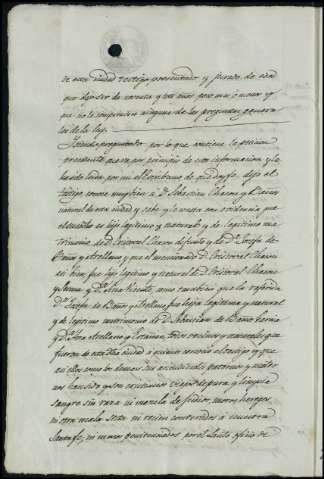 de esta ciudad testigo presentado y jurado de edad
que dijo ser de noventa y tres años poco mas ó menos y
que no le comprenden ninguna de las preguntas genera
les de la ley.
Siendo preguntado por lo que contiene la peticion
presentada que va por principio de esta informacion y le
ha sido leida por mi el Escribano de que Doy fe, dijo el
testigo conoce muy bien á Dn Sebastian Chacon y Baños
natural de esta ciudad y sabe y le consta con evidencia que
el susodicho es hijo legitimo y natural y de legitimo ma
trimonio de Dn Cristoval Chacon difunto y de Da Josefa de
Baños y Arellano y que el mencionado Dn Cristoval Chacon
asi bien fue hijo legitimo y natural de Dn Cristoval Chacon
y Da Vicente, como tambien que la referida
Da Josefa de Baños y Arellano fue hija legitima y natural
y de legitimo matrimonio de Dn Sebastian de Baños
y Da Arellano y todos vecinos y naturales que
fueron de esta dha ciudad á quienes conocio el testigo y que
asi ellos como los demas sus ascendientes paternos y mater
nos han sido y son cristianos viejos de pura y limpia
sangre sin raza ni mezcla de judios, moros, hereges,
ni otra mala secta ni recien convertidos á nuestra
santa fe, ni menos penitenciados por el Santo oficio de